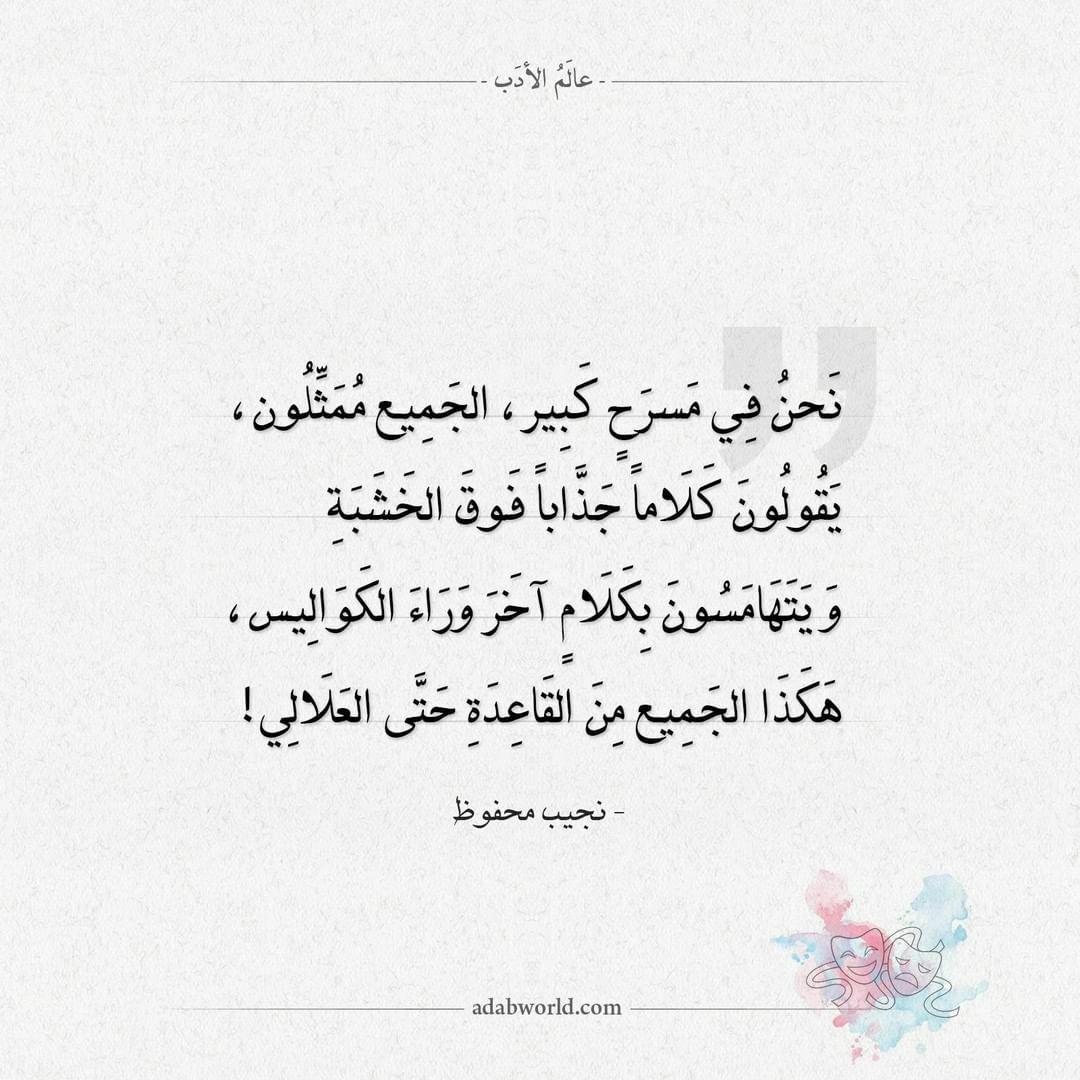 - عالَمُ الأدَب -
نَحنُ فِي مَسرَحٍ كَبِير ، الجَمِيع مُمَثِّلُون ،
يَقُولُونَ كَلَاماً جَذَّاباً فَوقَ الخَشَبَةِ
وَ يَتَهَامَسُونَ بِكَلَامٍ آخَرَ وَرَاءَ الكَوَالِيس ،
هَكَذَا الجَمِيع مِنَ القَاعِدَةِ حَتَّى العَلَالِي !
- نجيب محفوظ
adabworld.com